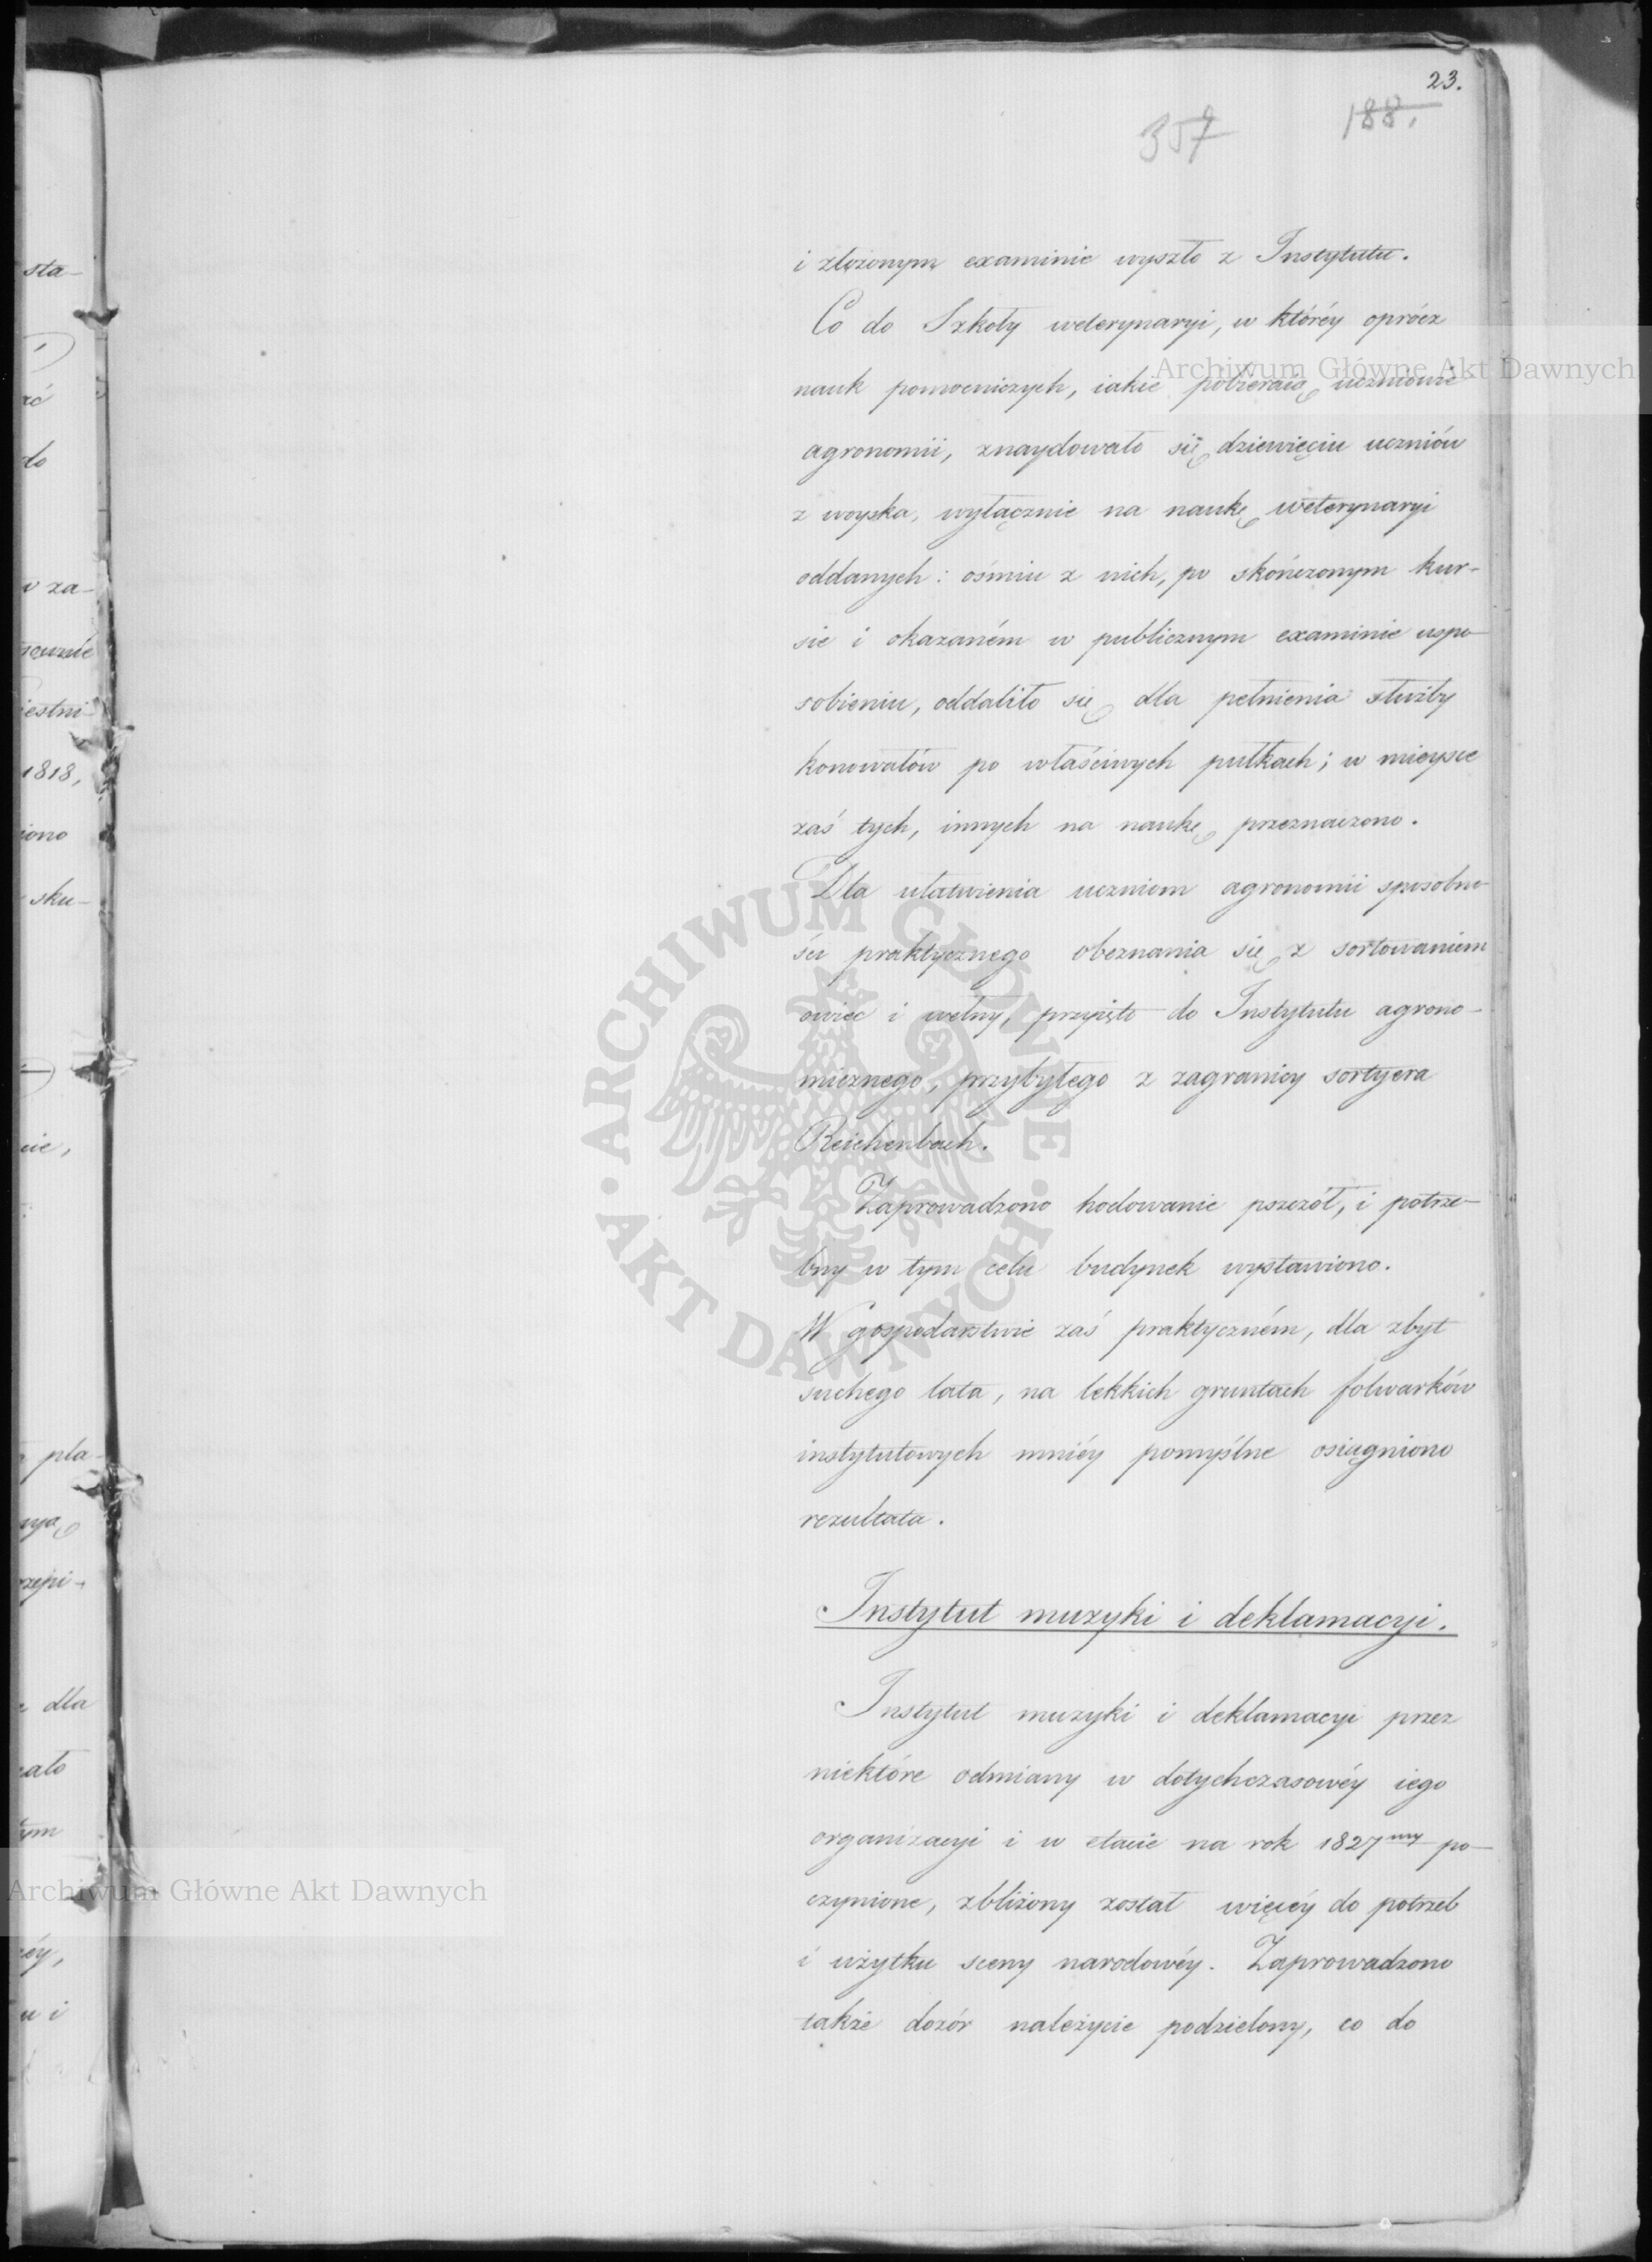 23.
357
188.
i złożonym examinie wyszło z Instytutu.
Co do Szkoły weterynaryi, w któréy oprócz
nauk pomocniczych, iakie pobieraią uczniowie
agronomii, znaydowało się dziewięciu uczniów
z woyska, wyłącznie na naukę weterynaryi
oddanych: ośmiu z nich, po skończonym kur-
sie i okazaném w publicznym examinie uspo-
sobieniu, oddaliło się dla pełnienia służby
konowałów po właściwych pułkach; w mieysce
zaś tych, innych na naukę przeznaczono.
Dla ułatwienia uczniom agronomii sposobno-
ści praktycznego obeznania się z sortowaniem
owiec i wełny, przyięto do Instytutu agrono-
micznego, przybyłego z zagranicy sortyera
Reichenbach.
Zaprowadzono hodowanie pszczół, i potrze-
bny w tym celu budynek wystawiono.
W gospodarstwie zaś praktyczném, dla zbyt
suchego lata, na lekkich gruntach folwarków
instytutowych mniéy pomyślne osiągniono
rezultata.
Instytut muzyki i deklamacyi.
Instytut muzyki i deklamacyi przez
niektóre odmiany w dotychczasowéy iego
organizacyi i w etacie na rok 1827my po-
czynione, zbliżony został więcéy do potrzeb
i użytku sceny narodowéy. Zaprowadzono
także dozór należycie podzielony, co do
sta-
do
w za-
1818,
sku-
pla-
dla
u i
Archiwum Główne Akt Dawnych
ARCHIWUM GŁÓWNE · AKT DAWNYCH ·
Archiwum Główne Akt Dawnych